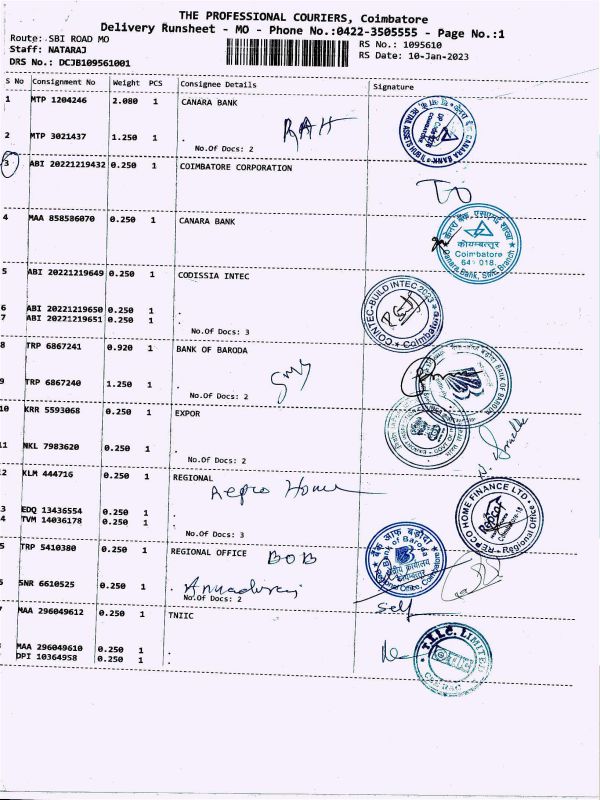 THE PROFESSIONAL COURIERS, Coimbatore
Delivery Runsheet - MO - Phone No.:0422-3505555 - Page No.:1
Route: SBI ROAD MO
RS No.: 1095610
Staff: NATARAJ
RS Date: 10-Jan-2023
DRS No.: DCJB109561001
S No Consignment No Weight PCS Consignee Details Signature
1 MTP 1204246 2.080 1 CANARA BANK
2 MTP 3021437 1.250 1
No.Of Docs: 2
3 ABI 20221219432 0.250 1 COIMBATORE CORPORATION
4 MAA 858586070 0.250 1 CANARA BANK
कोयम्बत्तूर
Coimbatore
641 018.
Canara Bank, SME Branch
5 ABI 20221219649 0.250 1 CODISSIA INTEC
COINTEC-BUILD INTEC 2023
Coimbatore
6 ABI 20221219650 0.250 1 .
7 ABI 20221219651 0.250 1 .
No.Of Docs: 3
8 TRP 6867241 0.920 1 BANK OF BARODA
BANK OF BARODA
9 TRP 6867240 1.250 1 .
No.Of Docs: 2
10 KRR 5593068 0.250 1 EXPOR
11 NKL 7983620 0.250 1 .
No.Of Docs: 2
2 KLM 444716 0.250 1 REGIONAL
Repco Home
REPCO HOME FINANCE LTD.
3 EDQ 13436554 0.250 1 .
4 TVM 14036178 0.250 1 .
No.Of Docs: 3
5 TRP 5410380 0.250 1 REGIONAL OFFICE BOB
बैंक ऑफ़ बड़ौदा
Bank of Baroda
क्षेत्रीय कार्यालय
6 SNR 6610525 0.250 1 .
No.Of Docs: 2
self
7 MAA 296049612 0.250 1 TNIIC
MAA 296049610 0.250 1 .
DPI 10364958 0.250 1 .